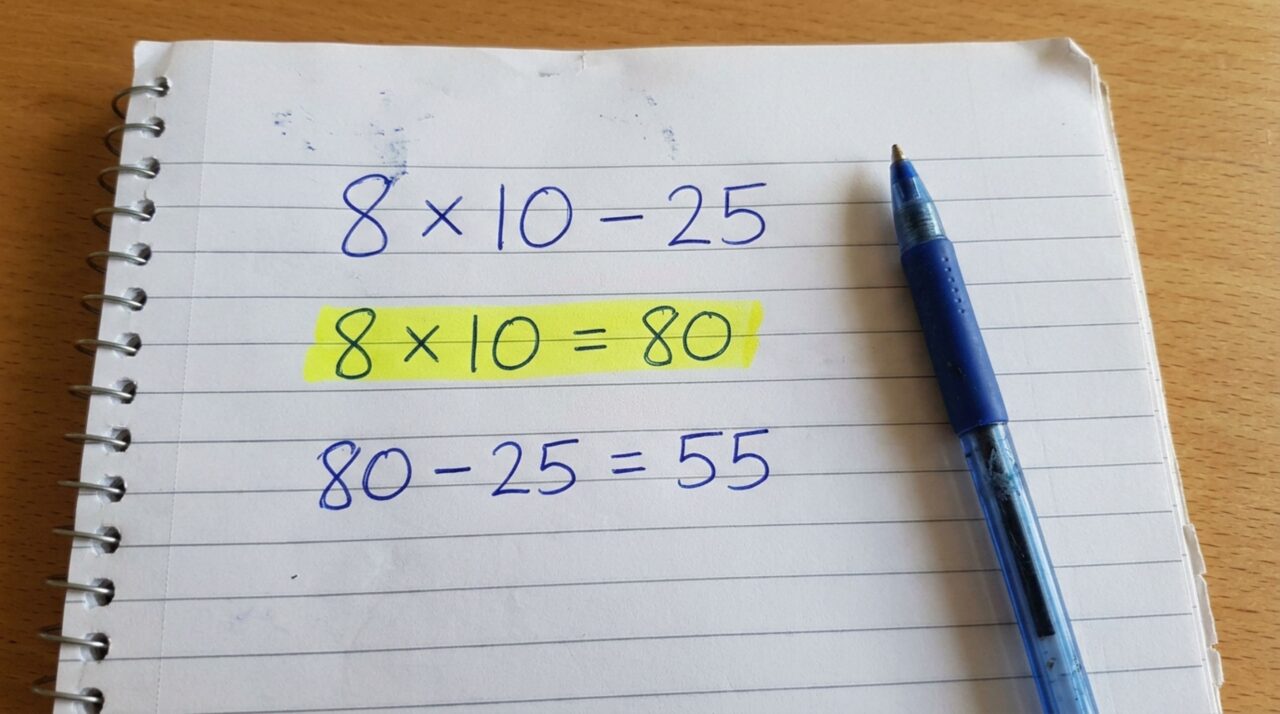 8 × 10 − 25
8 × 10 = 80
80 − 25 = 55